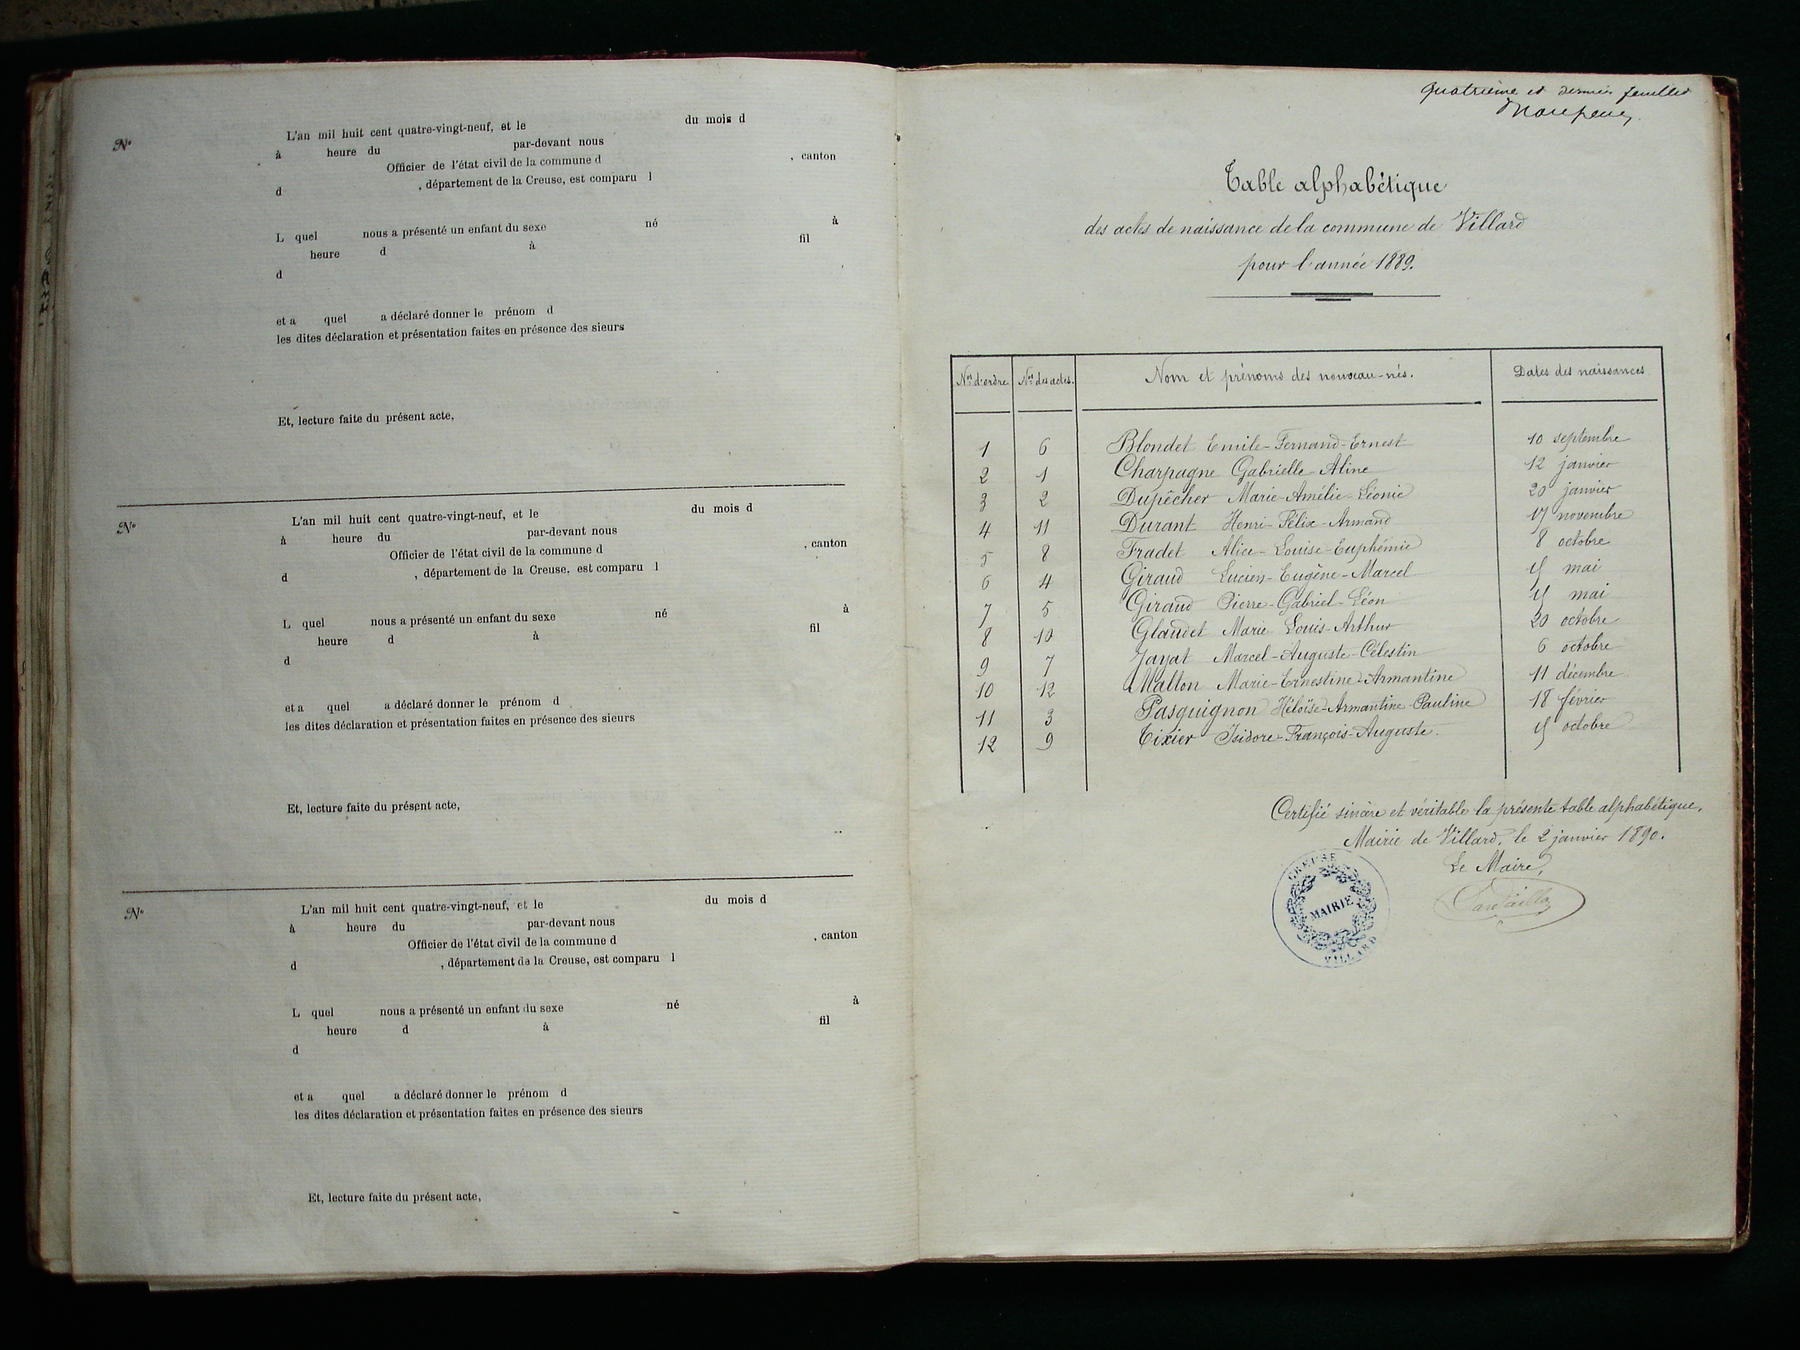 N°
L'an mil huit cent quatre-vingt-neuf, et le du mois d
à heure du par-devant nous
Officier de l'état civil de la commune d , canton
d , département de la Creuse, est comparu l
L quel nous a présenté un enfant du sexe né à
heure d à fil
d
et a quel a déclaré donner le prénom d
les dites déclaration et présentation faites en présence des sieurs
Et, lecture faite du présent acte,
N°
L'an mil huit cent quatre-vingt-neuf, et le du mois d
à heure du par-devant nous
Officier de l'état civil de la commune d , canton
d , département de la Creuse, est comparu l
L quel nous a présenté un enfant du sexe né à
heure d à fil
d
et a quel a déclaré donner le prénom d
les dites déclaration et présentation faites en présence des sieurs
Et, lecture faite du présent acte,
N°
L'an mil huit cent quatre-vingt-neuf, et le du mois d
à heure du par-devant nous
Officier de l'état civil de la commune d , canton
d , département de la Creuse, est comparu l
L quel nous a présenté un enfant du sexe né à
heure d à fil
d
et a quel a déclaré donner le prénom d
les dites déclaration et présentation faites en présence des sieurs
Et, lecture faite du présent acte,
Quatrième et dernier feuillet
Table alphabétique
des actes de naissance de la commune de Villard
pour l'année 1889.
Nos d'ordre Nos des actes. Nom et prénoms des nouveau-nés. Dates des naissances
1 6 Blondet Emile-Fernand-Ernest 10 septembre
2 1 Charpagne Gabrielle-Aline 12 janvier
3 2 Dupêcher Marie-Amélie-Léonie 20 janvier
4 11 Durant Henri-Félix-Armand 17 novembre
5 8 Fradet Alice-Louise-Euphémie 8 octobre
6 4 Giraud Lucien-Eugène-Marcel 5 mai
7 5 Giraud Pierre-Gabriel-Léon 5 mai
8 10 Glaudet Marie Louis-Arthur 20 octobre
9 7 Jayat Marcel-Auguste-Célestin 6 octobre
10 12 Malton Marie-Ernestine-Armantine 11 décembre
11 3 Pasquignon Héloïse-Armantine-Pauline 18 février
12 9 Tixier Isidore-François-Auguste. 5 octobre
Certifié sincère et véritable la présente table alphabétique.
Mairie de Villard, le 2 janvier 1890.
Le Maire,
CREUSE
MAIRIE
VILLARD